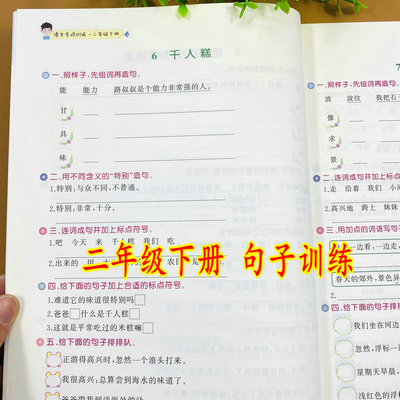 语文专项训练·二年级下册
6 千人糕
一、照样子,先组词再造句。
能 能力 路叔叔是个能力非常强的人。
甘
具
味
二、用不同含义的“特别”造句。
1.特别:与众不同,不普通。
2.特别:非常,十分。
三、连词成句并加上标点符号。
1.吧 今天 来 千人糕 我们 吃
2.出来的
二年级下册 句子训练
四、给下面的句子加上合适的标点符号。
1.难道它的味道很特别吗
2.爸爸 什么是千人糕
3.这就是平常吃过的米糕嘛
五、给下面的句子排排队。
正游得高兴时,忽然一个浪头打来。
我很高兴:总算尝到海水的味道了。
爸爸带我到浅海处游泳
7
一、照样子,先组词再造句。
波 波纹 我把石
像
求
景
二、连词成句并加上标点
1.走 沿着 我们 小河
2.高兴地 跨上 妹妹
三、用加点的词语写句子
一边看,一边走,
春天的郊外,景色异
四、给下面的句子排排队。
我们坐在河边
忽然,浮标一
星期天早晨,
浅红色的浮标